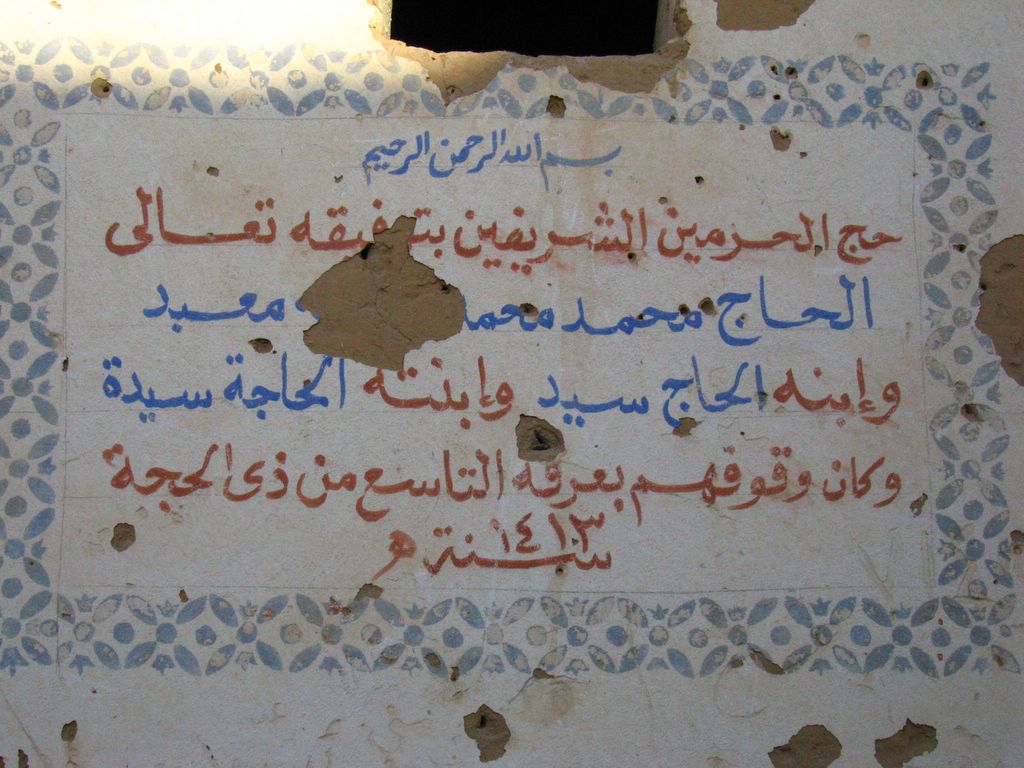 بسم الله الرحمن الرحيم
حج الحرمين الشريفين بتوفيقه تعالى
الحاج محمد محمد معبد
وإبنه الحاج سيد وإبنته الحاجة سيدة
وكان وقوفهم بعرفة التاسع من ذى الحجة
سنة ١٤١٣ هـ